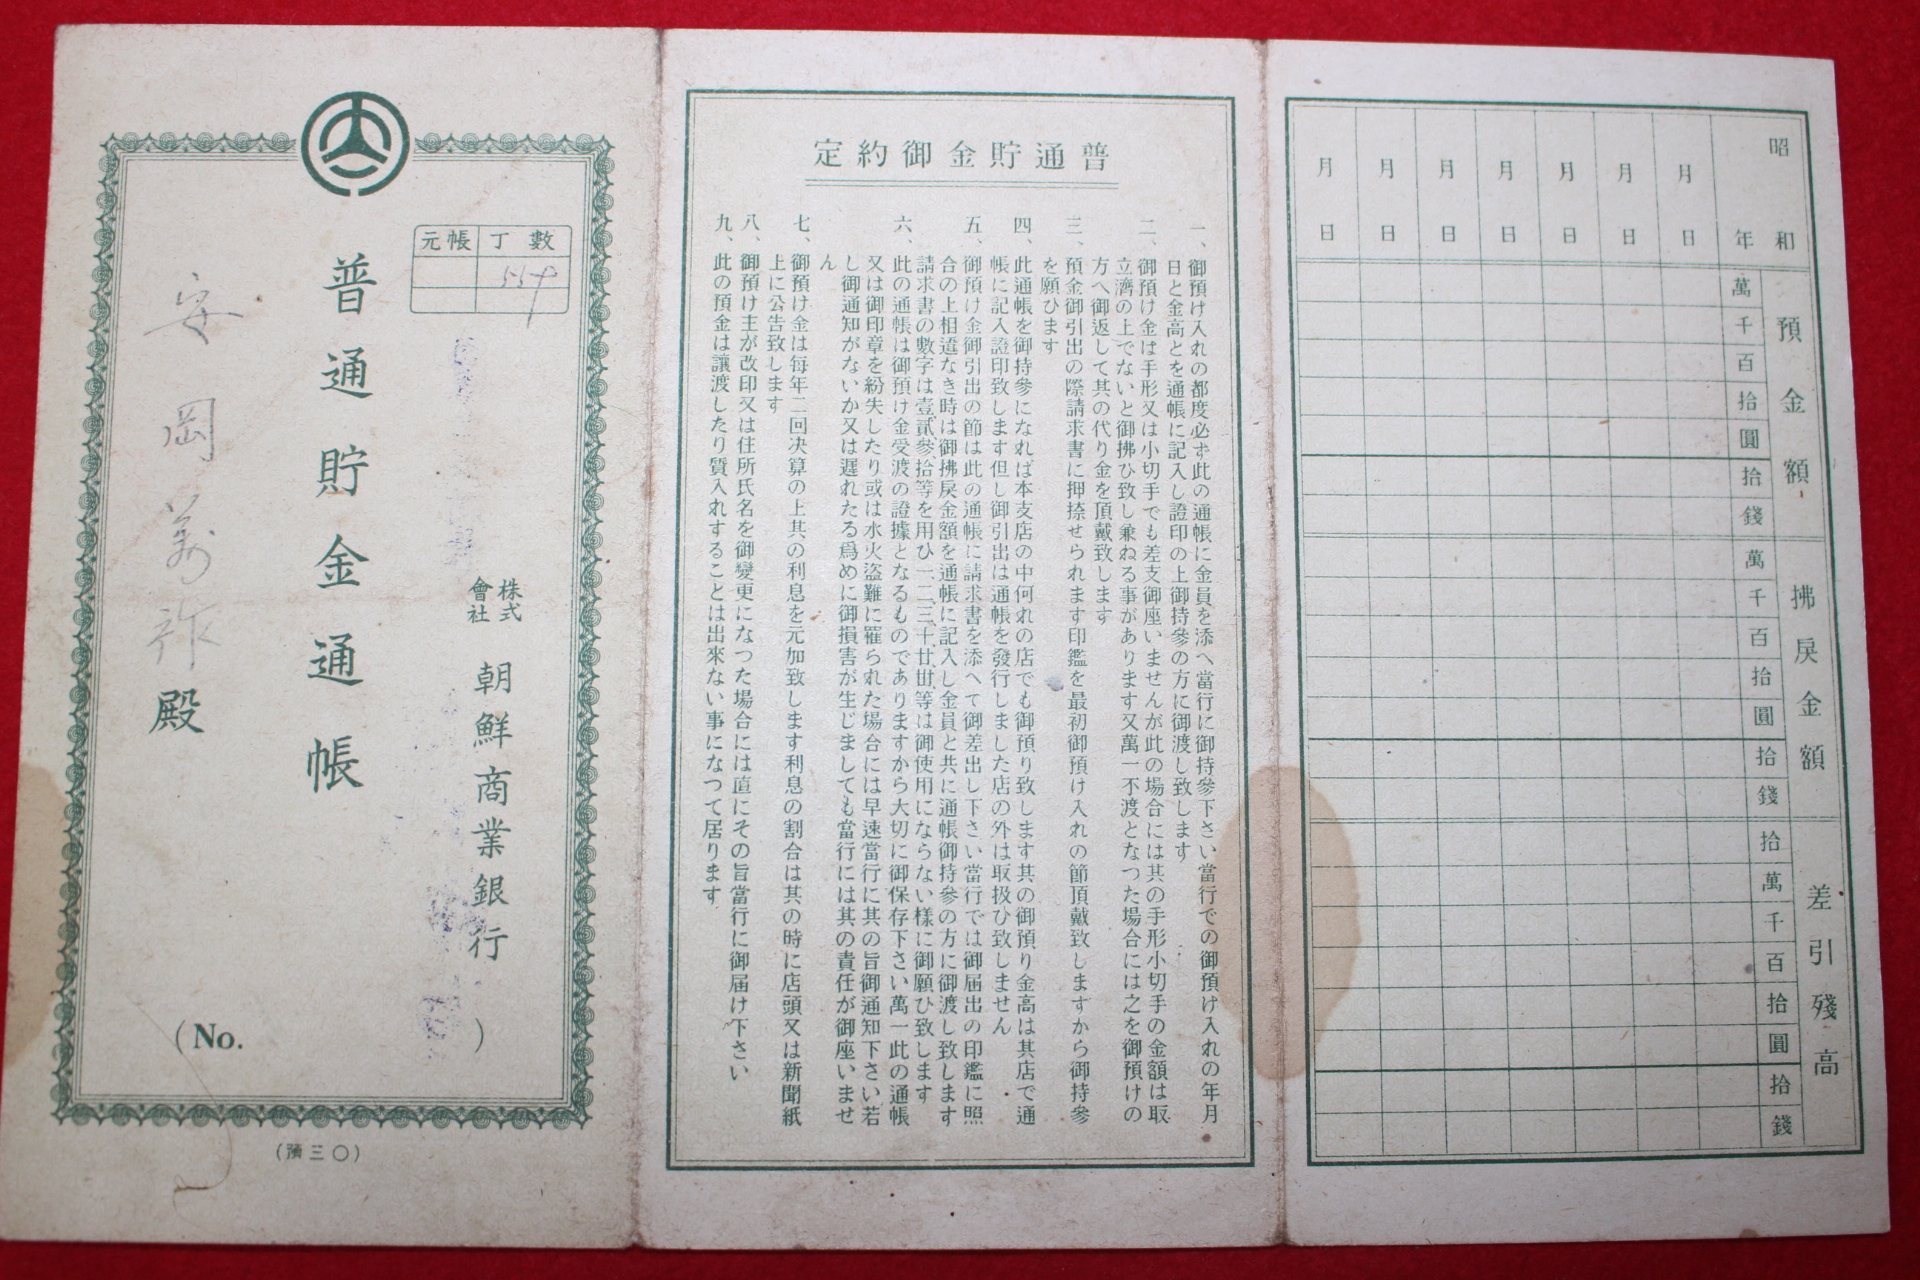 元帳 丁數
557
株式會社 朝鮮商業銀行
普通貯金通帳
安岡萬祚殿
(No. )
(預三〇)
普通貯金御約定
一、御預け入れの都度必ず此の通帳に金員を添へ當行に御持參下さい當行での御預け入れの年月
日と金高とを通帳に記入し證印の上御持參の方に御渡し致します
二、御預け金は手形又は小切手でも差支御座いませんが此の場合には其の手形小切手の金額は取
立濟の上でないと御拂ひ致し兼ねる事があります又萬一不渡となつた場合には之を御預けの
方へ御返して其の代り金を頂戴致します
三、預金御引出の際請求書に押捺せられます印鑑を最初御預け入れの節頂戴致しますから御持參
を願ひます
四、此通帳を御持參になれば本支店の中何れの店でも御預り致します其の御預り金高は其店で通
帳に記入證印致します但し御引出は通帳を發行しました店の外は取扱ひ致しません
五、御預け金御引出の節は此の通帳に請求書を添へて御差出し下さい當行では御届出の印鑑に照
合の上相違なき時は御拂戾金額を通帳に記入し金員と共に通帳御持參の方に御渡し致します
請求書の數字は壹貳參拾等を用ひ一二三十廿卅等は御使用にならない樣に御願ひ致します
六、此の通帳は御預け金受渡の證據となるものでありますから大切に御保存下さい萬一此の通帳
又は御印章を紛失したり或は水火盜難に罹られた場合には早速當行に其の旨御通知下さい若
し御通知がないか又は遲れたる爲めに御損害が生じましても當行には其の責任が御座いませ
ん
七、御預け金は每年二回決算の上其の利息を元加致します利息の割合は其の時に店頭又は新聞紙
上に公告致します
八、御預け主が改印又は住所氏名を御變更になつた場合には直にその旨當行に御届け下さい
九、此の預金は讓渡したり質入れすることは出來ない事になつて居ります
昭和 年 月日 月日 月日 月日 月日 月日 月日
預金額 萬千百拾圓拾錢
拂戾金額 萬千百拾圓拾錢
差引殘高 拾萬千百拾圓拾錢